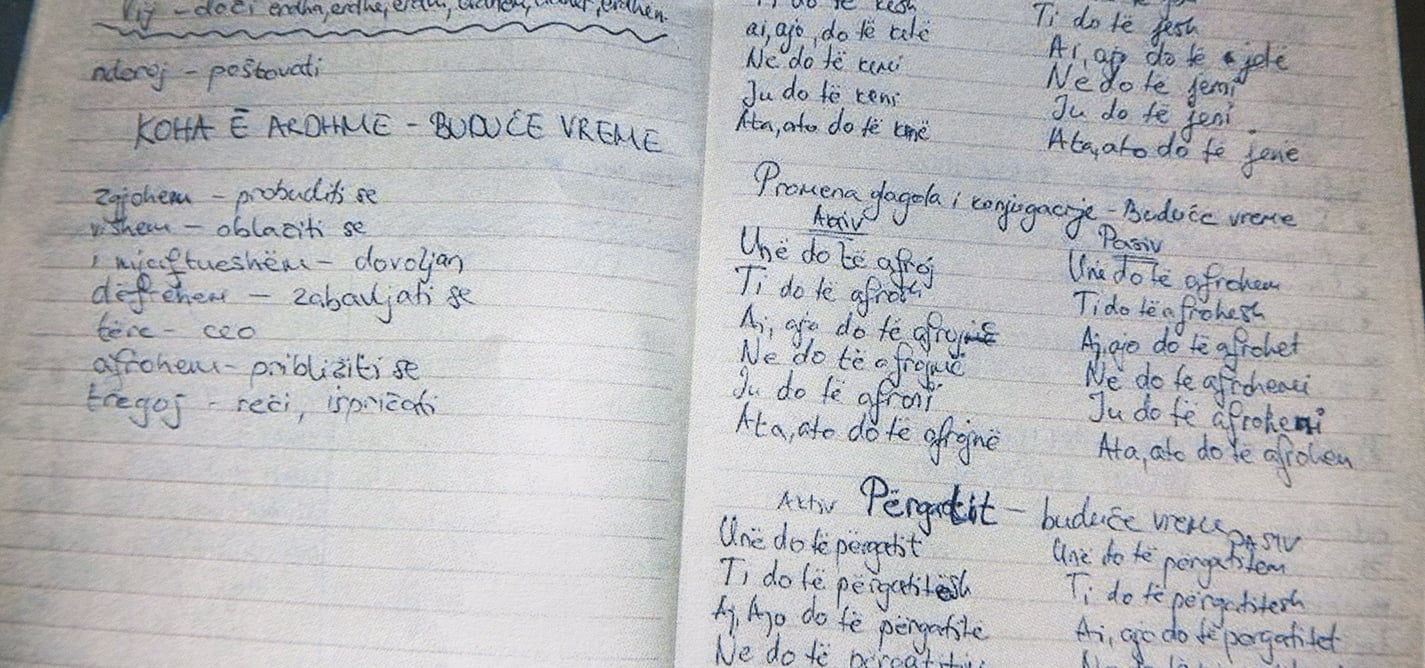 Vij - doći erdha, erdhe, erdhi, erdhëm, erdhët, erdhën.
nderoj - poštovati
KOHA Ē ARDHME - BUDUĆE VREME
zgjohem - probuditi se
vishem - oblačiti se
i mjaftueshëm - dovoljan
dëfrehem - zabavljati se
tërë - ceo
afrohem - približiti se
tregoj - reći, ispričati
Ti do të kesh
ai, ajo, do të ketë
Ne do të kemi
Ju do të keni
Ata, ato do të kenë
Ti do të jesh
Ai, ajo do të jetë
Ne do të jemi
Ju do të jeni
Ata, ato do të jenë
Promena glagola i konjugacije - Buduće vreme
Aktiv
Unë do të afroj
Ti do të afrosh
Ai, ajo do të afrojë
Ne do të afrojmë
Ju do të afroni
Ata, ato do të afrojnë
Pasiv
Unë do të afrohem
Ti do të afrohesh
Ai, ajo do të afrohet
Ne do të afrohemi
Ju do të afroheni
Ata, ato do të afrohen
Aktiv Përgatit - buduće vreme PASIV
Unë do të përgatit
Ti do të përgatitësh
Aj, Ajo do të përgatitë
Ne do të
Unë do të përgatitem
Ti do të përgatitesh
Ai, ajo do të përgatitet